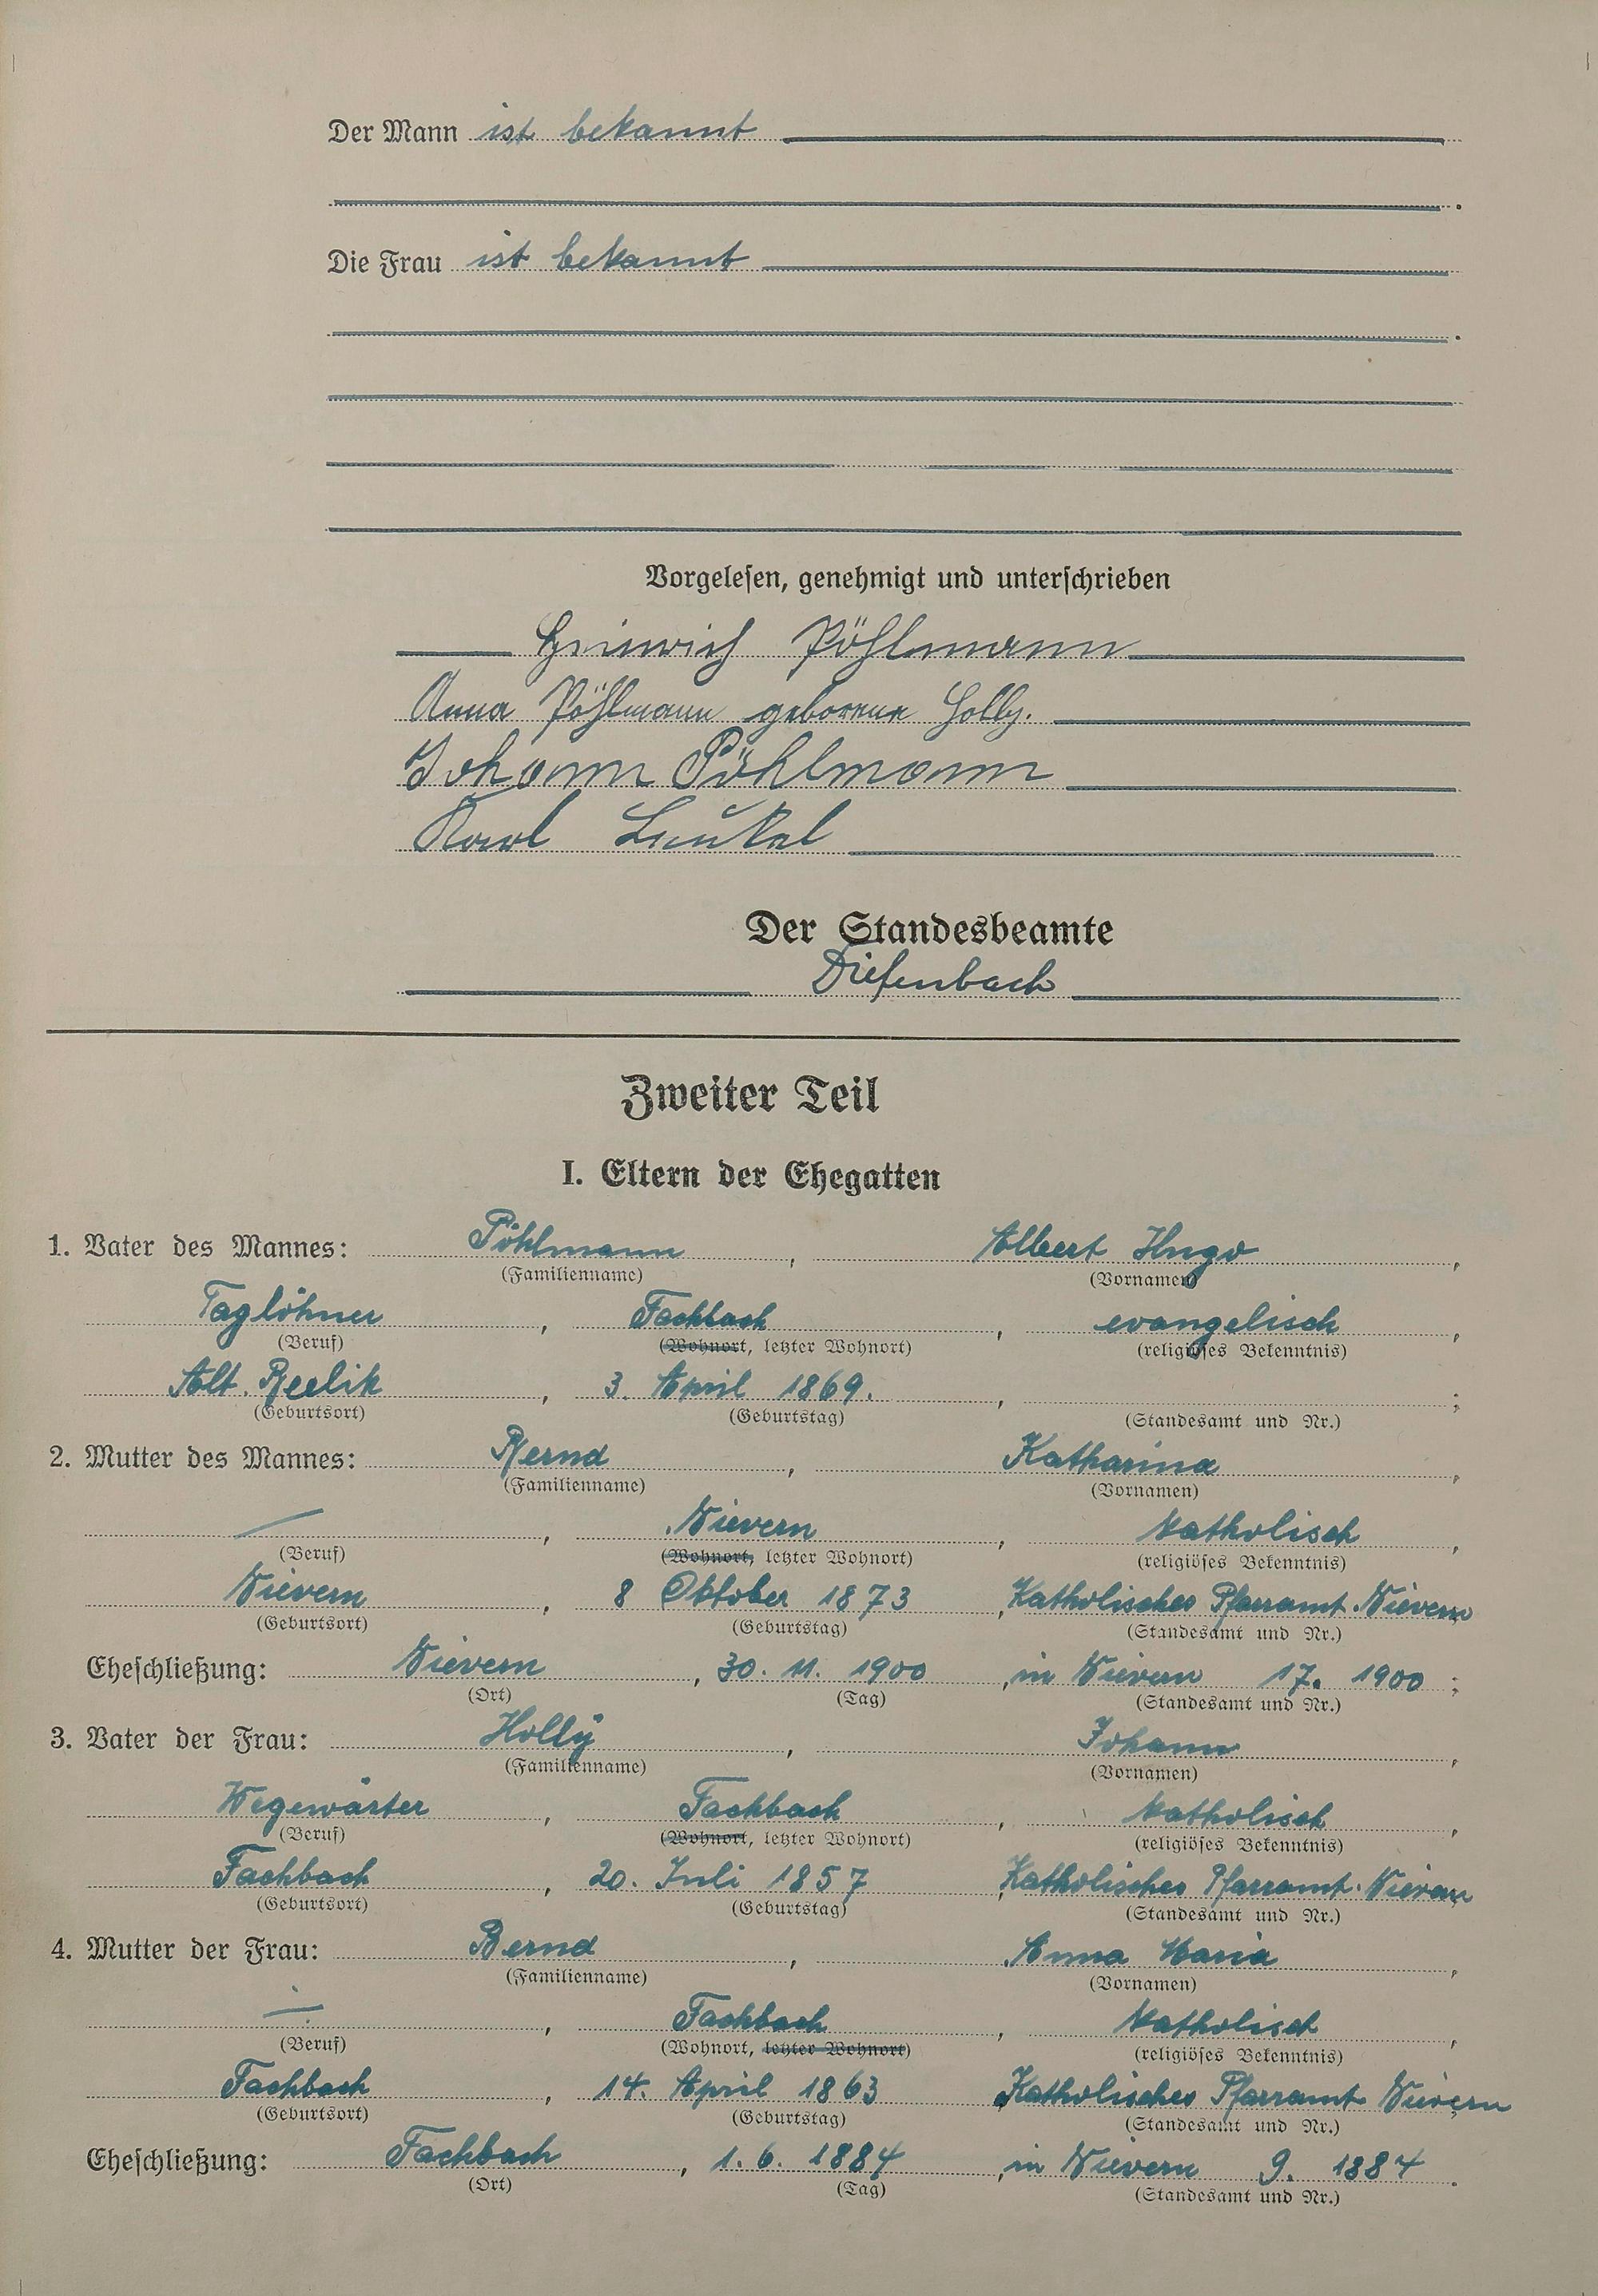 Der Mann ist bekannt
Die Frau ist bekannt
Vorgelesen, genehmigt und unterschrieben
Heinrich Pöhlmann
Anna Pöhlmann geborene Holly.
Johann Pöhlmann
Karl
Der Standesbeamte
Diefenbach
Zweiter Teil
I. Eltern der Ehegatten
1. Vater des Mannes: Pöhlmann, Albert Hugo,
(Familienname) (Vornamen)
Taglöhner, Fachbach, evangelisch,
(Beruf) (Wohnort, letzter Wohnort) (religiöses Bekenntnis)
Alt, 3. April 1869.,;
(Geburtsort) (Geburtstag) (Standesamt und Nr.)
2. Mutter des Mannes: Bernd, Katharina,
(Familienname) (Vornamen)
—, Nievern, katholisch,
(Beruf) (Wohnort, letzter Wohnort) (religiöses Bekenntnis)
Nievern, 8 Oktober 1873, Katholisches Pfarramt Nievern
(Geburtsort) (Geburtstag) (Standesamt und Nr.)
Eheschließung: Nievern, 30. 11. 1900, in Nievern 17. 1900;
(Ort) (Tag) (Standesamt und Nr.)
3. Vater der Frau: Holly, Johann,
(Familienname) (Vornamen)
Wegewärter, Fachbach, katholisch,
(Beruf) (Wohnort, letzter Wohnort) (religiöses Bekenntnis)
Fachbach, 20. Juli 1857, Katholisches Pfarramt Nievern
(Geburtsort) (Geburtstag) (Standesamt und Nr.)
4. Mutter der Frau: Bernd, Anna Maria,
(Familienname) (Vornamen)
—, Fachbach, katholisch,
(Beruf) (Wohnort, letzter Wohnort) (religiöses Bekenntnis)
Fachbach, 14. April 1863 Katholisches Pfarramt Nievern
(Geburtsort) (Geburtstag) (Standesamt und Nr.)
Eheschließung: Fachbach, 1. 6. 1884, in Nievern 9. 1884.
(Ort) (Tag) (Standesamt und Nr.)